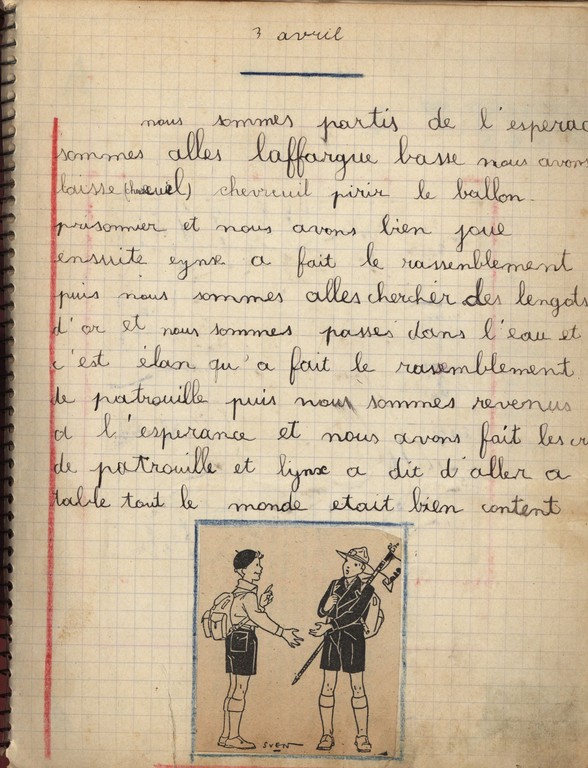 3 avril
nous sommes partis de l'esperac
sommes alles laffargue basse nous avons
laisse chevreuil pirir le ballon
prisonnier et nous avons bien joue
ensuite eynx a fait le rassemblement
puis nous sommes alles chercher des lengots
d'or et nous sommes passes dans l'eau et
c'est élan qu'a fait le rassemblement
de patrouille puis nous sommes revenus
a l'esperance et nous avons fait les cr
de patrouille et lynx a dit d'aller a
table tout le monde etait bien content
SVEN